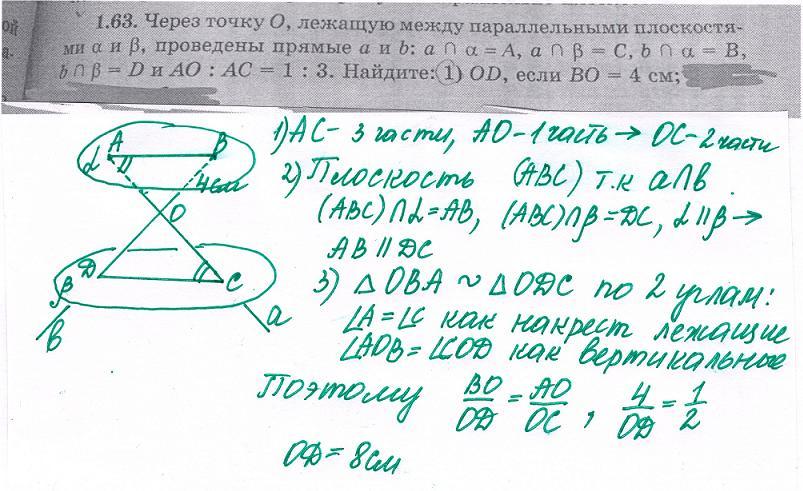 1.63. Через точку O, лежащую между параллельными плоскостя-
ми α и β, проведены прямые a и b: a ∩ α = A, a ∩ β = C, b ∩ α = B,
b ∩ β = D и AO : AC = 1 : 3. Найдите: 1) OD, если BO = 4 см;
ой
а-
1) AC - 3 части, AO - 1 часть → OC - 2 части
2) Плоскость (ABC) т.к a∩b.
(ABC)∩α=AB, (ABC)∩β=DC, α||β→
AB || DC
3) △OBA ~ △ODC по 2 углам:
∠A=∠C как накрест лежащие
∠AOB=∠COD как вертикальные
Поэтому BO/OD = AO/OC, 4/OD = 1/2
OD = 8см
A
B
α
4см
O
D
C
β
a
b